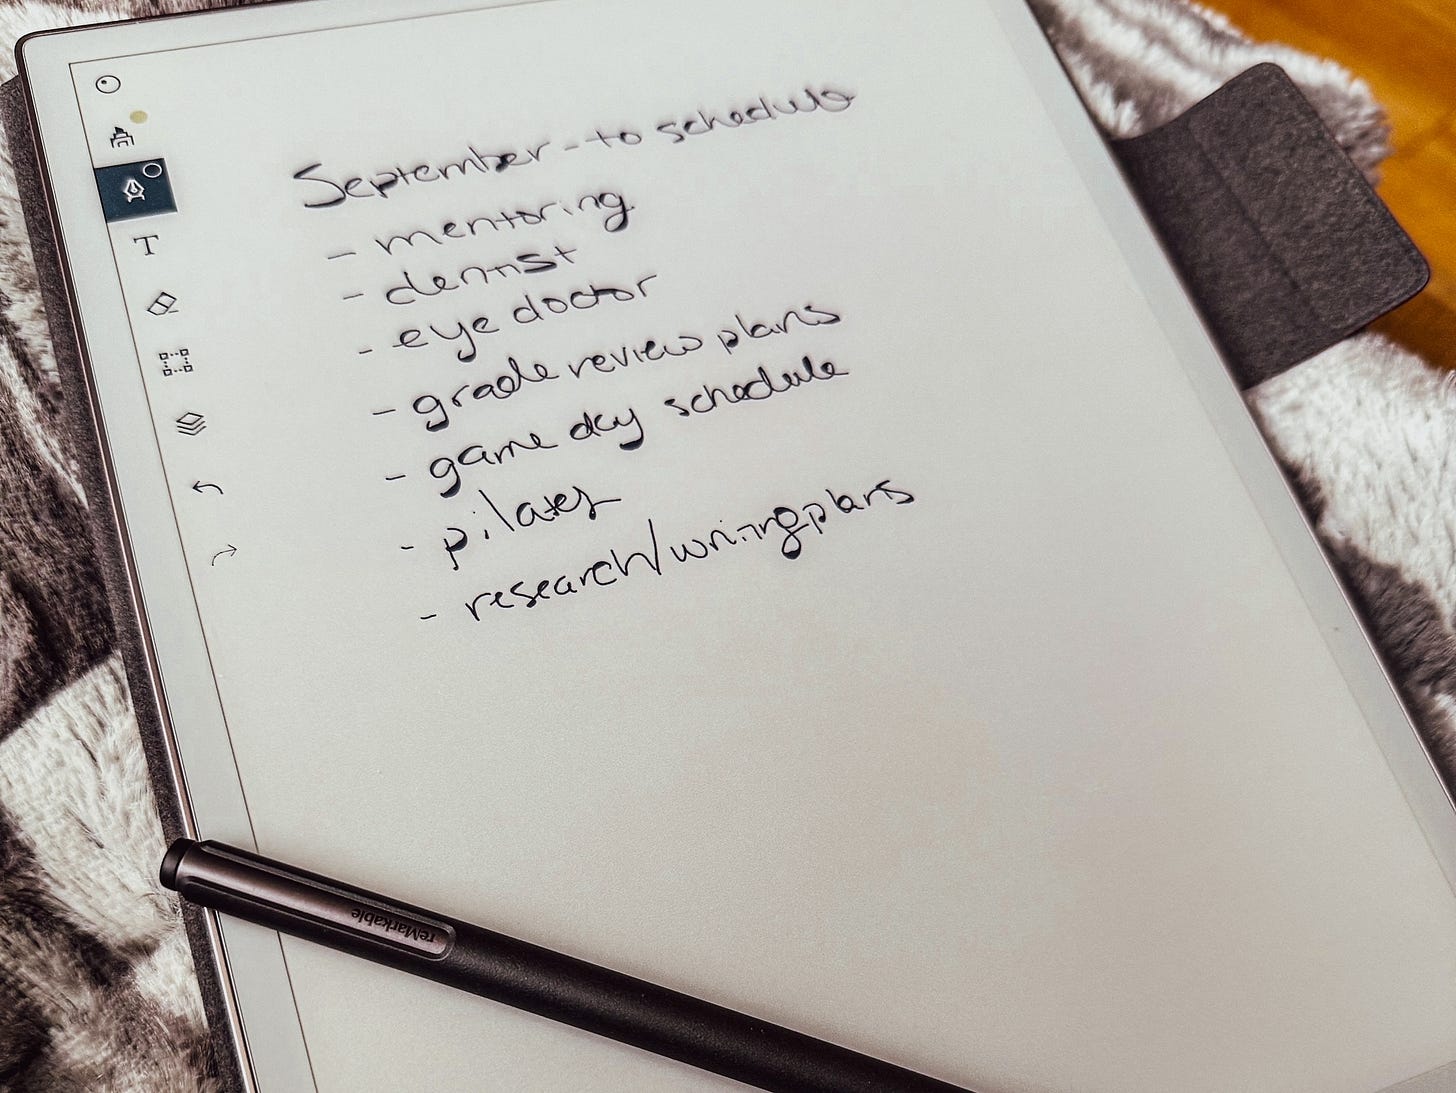 September - to schedule
- mentoring
- dentist
- eye doctor
- grade review plans
- game day schedule
- pilates
- research/writing plans
T
reMarkable